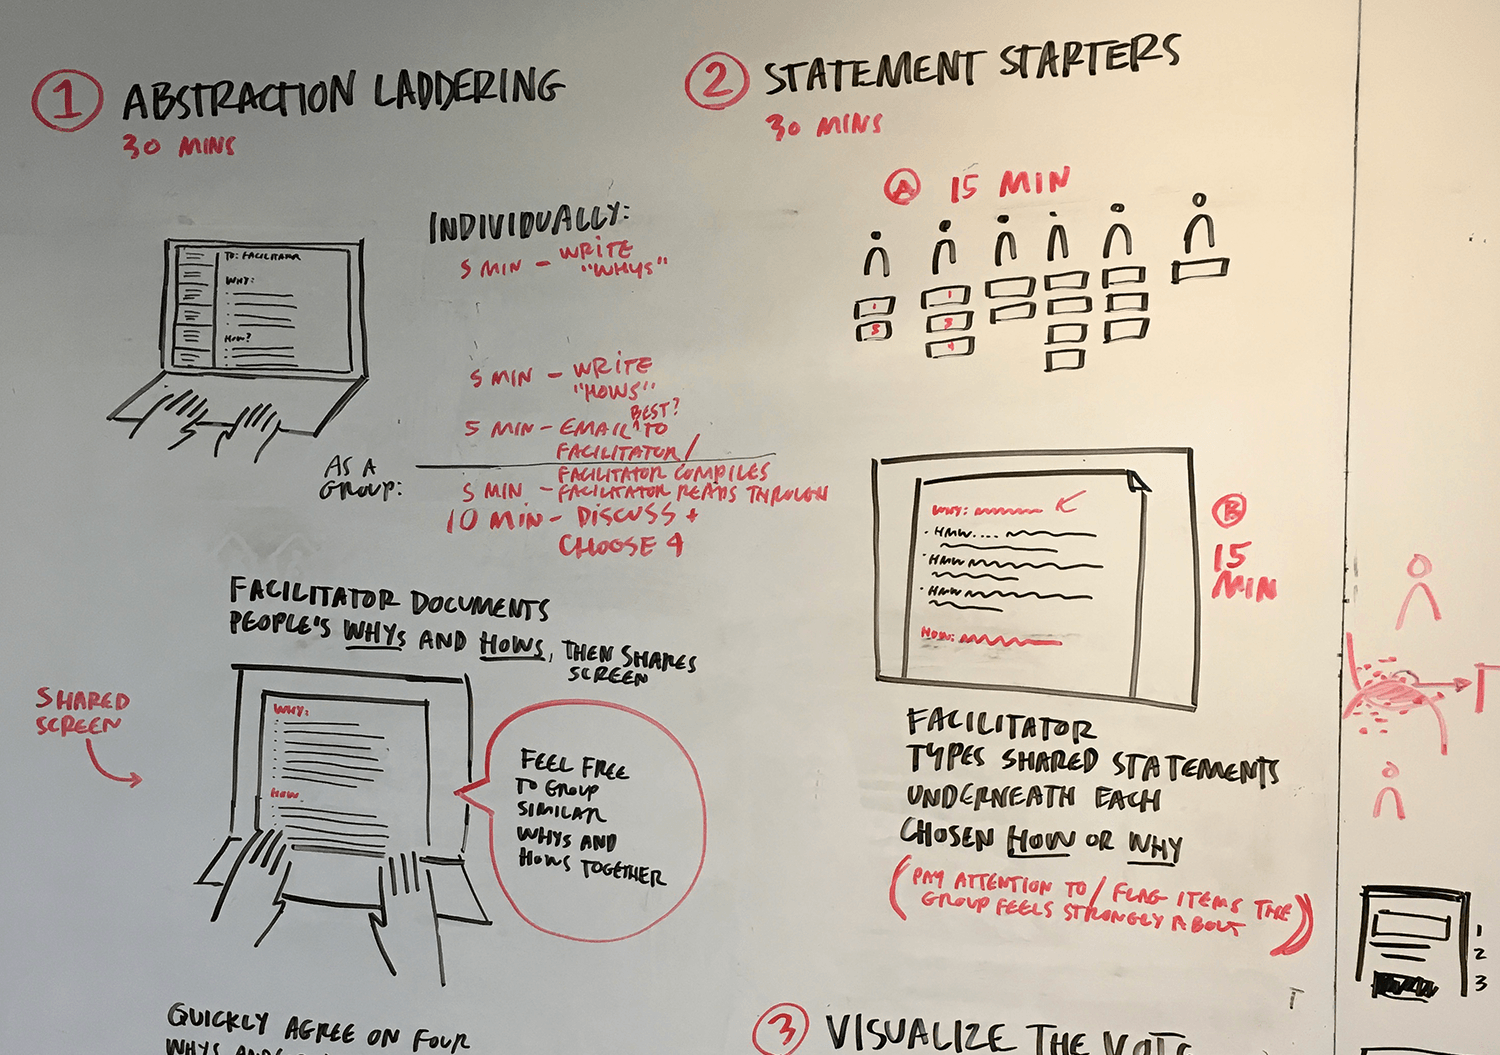 1 ABSTRACTION LADDERING
30 MINS
INDIVIDUALLY:
5 MIN - WRITE
"WHYS"
TO: FACILITATOR
WHY:
HOW?
5 MIN - WRITE
"HOWS"
BEST?
5 MIN - EMAIL ^ TO
FACILITATOR /
AS A
GROUP:
FACILITATOR COMPILES
5 MIN - FACILITATOR READS THROUGH
10 MIN - DISCUSS +
CHOOSE 4
FACILITATOR DOCUMENTS
PEOPLE'S WHYS AND HOWS, THEN SHARES
SCREEN
SHARED
SCREEN
WHY:
HOW
FEEL FREE
TO GROUP
SIMILAR
WHYS AND
HOWS TOGETHER
QUICKLY AGREE ON FOUR
2 STATEMENT STARTERS
30 MINS
A 15 MIN
1
5
1
3
4
WHY:
HMW....
HMW
HMW
HOW:
B
15
MIN
FACILITATOR
TYPES SHARED STATEMENTS
UNDERNEATH EACH
CHOSEN HOW OR WHY
(PAY ATTENTION TO / FLAG ITEMS THE
GROUP FEELS STRONGLY ABOUT)
3 VISUALIZE THE VOTE
1
2
3